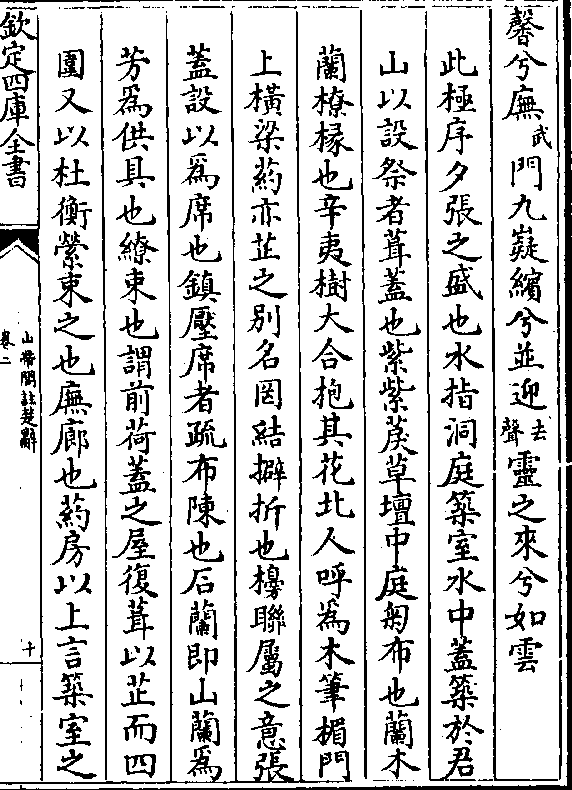 馨兮廡武門九嶷繽兮並迎去聲靈之來兮如雲
此極序夕張之盛也水指洞庭築室水中蓋築於君
山以設祭者葺蓋也紫紫䓞草壇中庭匊布也蘭木
蘭橑椽也辛夷樹大合抱其花北人呼為木筆楣門
上橫梁葯亦芷之別名罔結擗折也櫋聯屬之意張
蓋設以為席也鎮壓席者疏布陳也石蘭即山蘭為
芳為供具也繚束也謂前荷蓋之屋復葺以芷而四
圍又以杜衡縈束之也廡廊也葯房以上言築室之
欽定四庫全書
山帶閣註楚辭
卷二
十